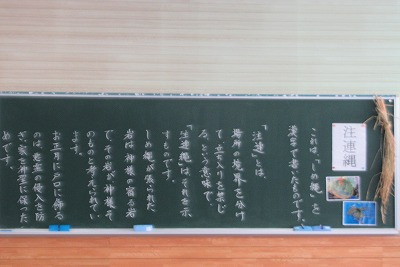 注連縄
これは、「しめ縄」を
漢字で書いたものです。
「注連」とは、
場所の境界を分け
て、立ち入りを禁じ
る、という意味で、
「注連縄」はそれを示
すものです。
しめ縄が張られた
岩は神様の宿る岩
で、その岩が、神様そ
のものと考えられてい
ます。
お正月に戸口に飾る
のは、悪霊の侵入を防
ぎ、家を神聖に保つた
めです。